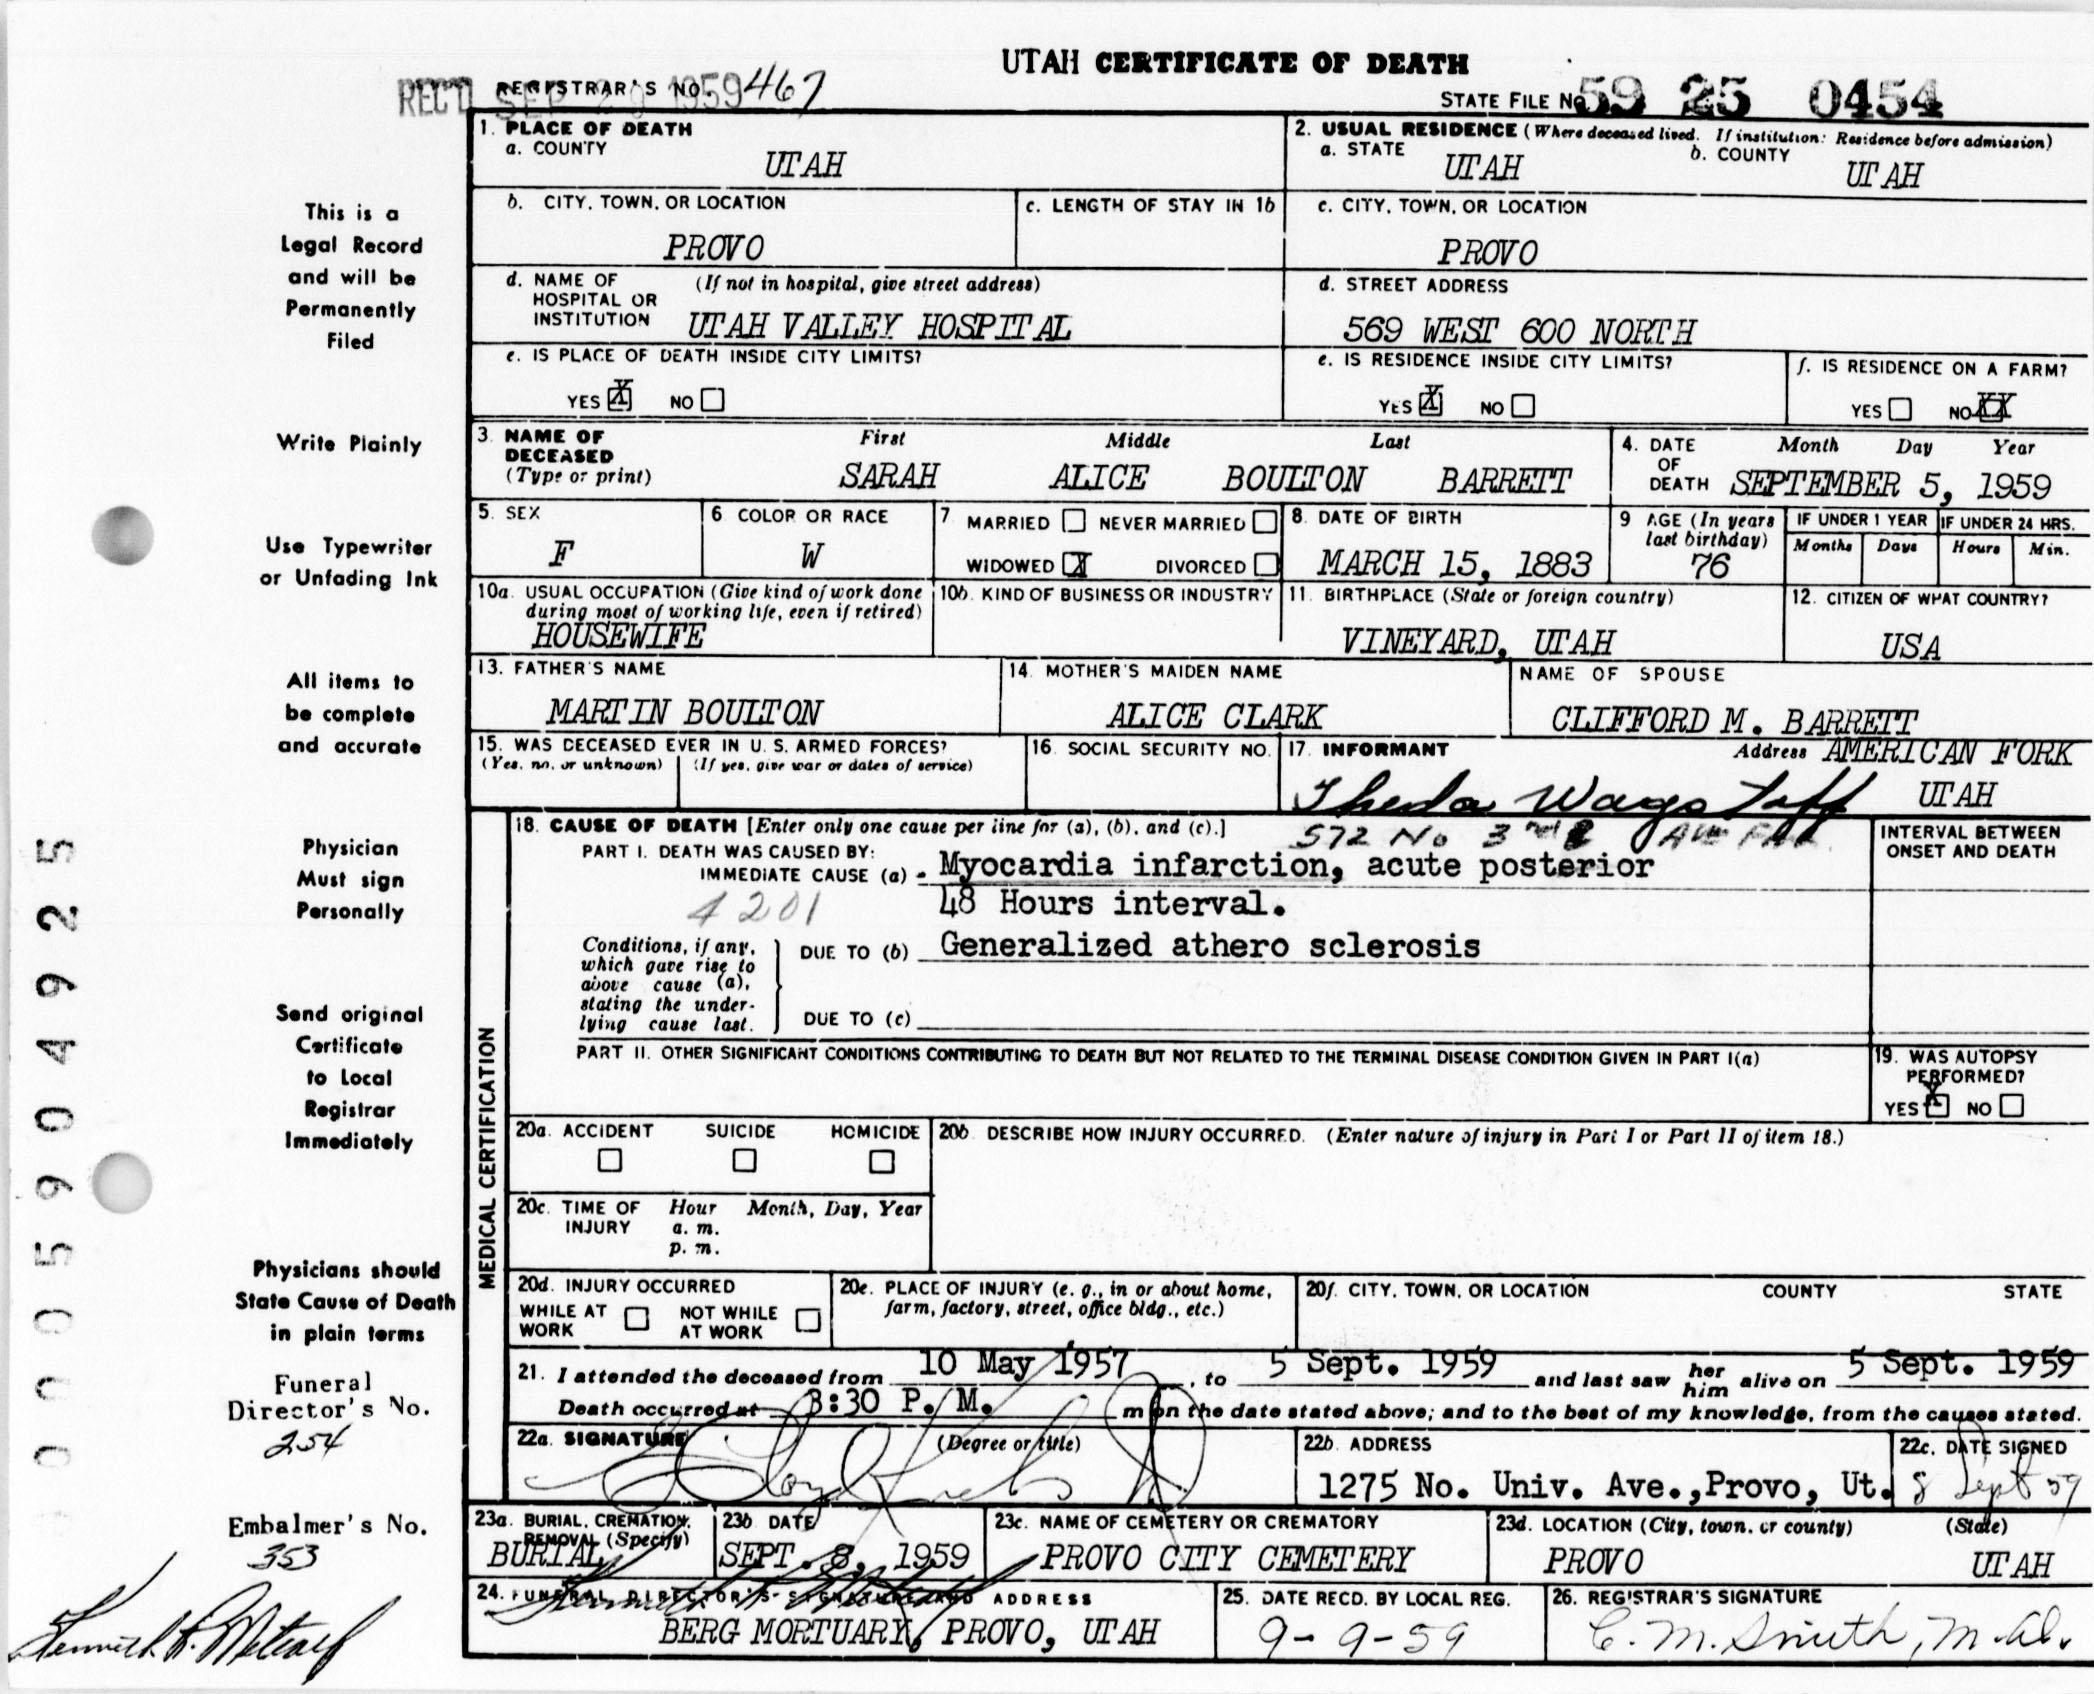 UTAH CERTIFICATE OF DEATH
REC'D SEP 1959
REGISTRAR'S NO. 467
STATE FILE NO. 59 25 0454
1. PLACE OF DEATH
a. COUNTY
UTAH
2. USUAL RESIDENCE (Where deceased lived. If institution: Residence before admission)
a. STATE UTAH b. COUNTY UTAH
b. CITY, TOWN, OR LOCATION
PROVO
c. LENGTH OF STAY IN 1b
c. CITY, TOWN, OR LOCATION
PROVO
d. NAME OF HOSPITAL OR INSTITUTION (If not in hospital, give street address)
UTAH VALLEY HOSPITAL
d. STREET ADDRESS
569 WEST 600 NORTH
e. IS PLACE OF DEATH INSIDE CITY LIMITS?
YES X NO
e. IS RESIDENCE INSIDE CITY LIMITS?
YES X NO
f. IS RESIDENCE ON A FARM?
YES NO XX
3. NAME OF DECEASED (Type or print)
First Middle Last
SARAH ALICE BOULTON BARRETT
4. DATE OF DEATH Month Day Year
SEPTEMBER 5, 1959
5. SEX
F
6 COLOR OR RACE
W
7 MARRIED NEVER MARRIED
WIDOWED X DIVORCED
8. DATE OF BIRTH
MARCH 15, 1883
9 AGE (In years last birthday)
76
IF UNDER 1 YEAR
Months Days
IF UNDER 24 HRS.
Hours Min.
10a. USUAL OCCUPATION (Give kind of work done during most of working life, even if retired)
HOUSEWIFE
10b. KIND OF BUSINESS OR INDUSTRY
11. BIRTHPLACE (State or foreign country)
VINEYARD, UTAH
12. CITIZEN OF WHAT COUNTRY?
USA
13. FATHER'S NAME
MARTIN BOULTON
14. MOTHER'S MAIDEN NAME
ALICE CLARK
NAME OF SPOUSE
CLIFFORD M. BARRETT
15. WAS DECEASED EVER IN U. S. ARMED FORCES?
(Yes, no, or unknown) (If yes, give war or dates of service)
16. SOCIAL SECURITY NO.
17. INFORMANT Address AMERICAN FORK
Theda Wagstaff UTAH
572 No 3rd
18. CAUSE OF DEATH [Enter only one cause per line for (a), (b), and (c).]
PART I. DEATH WAS CAUSED BY:
IMMEDIATE CAUSE (a) Myocardia infarction, acute posterior
4201 48 Hours interval.
Conditions, if any, which gave rise to above cause (a), stating the underlying cause last.
DUE TO (b) Generalized athero sclerosis
DUE TO (c)
INTERVAL BETWEEN ONSET AND DEATH
PART II. OTHER SIGNIFICANT CONDITIONS CONTRIBUTING TO DEATH BUT NOT RELATED TO THE TERMINAL DISEASE CONDITION GIVEN IN PART I(a)
19. WAS AUTOPSY PERFORMED?
YES X NO
MEDICAL CERTIFICATION
20a. ACCIDENT SUICIDE HOMICIDE
20b DESCRIBE HOW INJURY OCCURRED. (Enter nature of injury in Part I or Part II of item 18.)
20c. TIME OF INJURY Hour Month, Day, Year
a. m.
p. m.
20d. INJURY OCCURRED
WHILE AT WORK NOT WHILE AT WORK
20e. PLACE OF INJURY (e. g., in or about home, farm, factory, street, office bldg., etc.)
20f. CITY, TOWN, OR LOCATION COUNTY STATE
21. I attended the deceased from 10 May 1957, to 5 Sept. 1959 and last saw her him alive on 5 Sept. 1959
Death occurred at 3:30 P. M. m on the date stated above; and to the best of my knowledge, from the causes stated.
22a. SIGNATURE (Degree or title)
22b. ADDRESS
1275 No. Univ. Ave.,Provo, Ut.
22c. DATE SIGNED
8 Sept 59
23a. BURIAL, CREMATION, REMOVAL (Specify)
BURIAL
23b DATE
SEPT. 8, 1959
23c. NAME OF CEMETERY OR CREMATORY
PROVO CITY CEMETERY
23d. LOCATION (City, town, or county) (State)
PROVO UTAH
24. FUNERAL DIRECTOR'S SIGNATURE AND ADDRESS
BERG MORTUARY, PROVO, UTAH
25. DATE RECD. BY LOCAL REG.
9-9-59
26. REGISTRAR'S SIGNATURE
C. M. Smith, M.D.
This is a
Legal Record
and will be
Permanently
Filed
Write Plainly
Use Typewriter
or Unfading Ink
All items to
be complete
and accurate
Physician
Must sign
Personally
Send original
Certificate
to Local
Registrar
Immediately
Physicians should
State Cause of Death
in plain terms
Funeral
Director's No.
254
Embalmer's No.
353
Kenneth R. Metcalf
0005904925